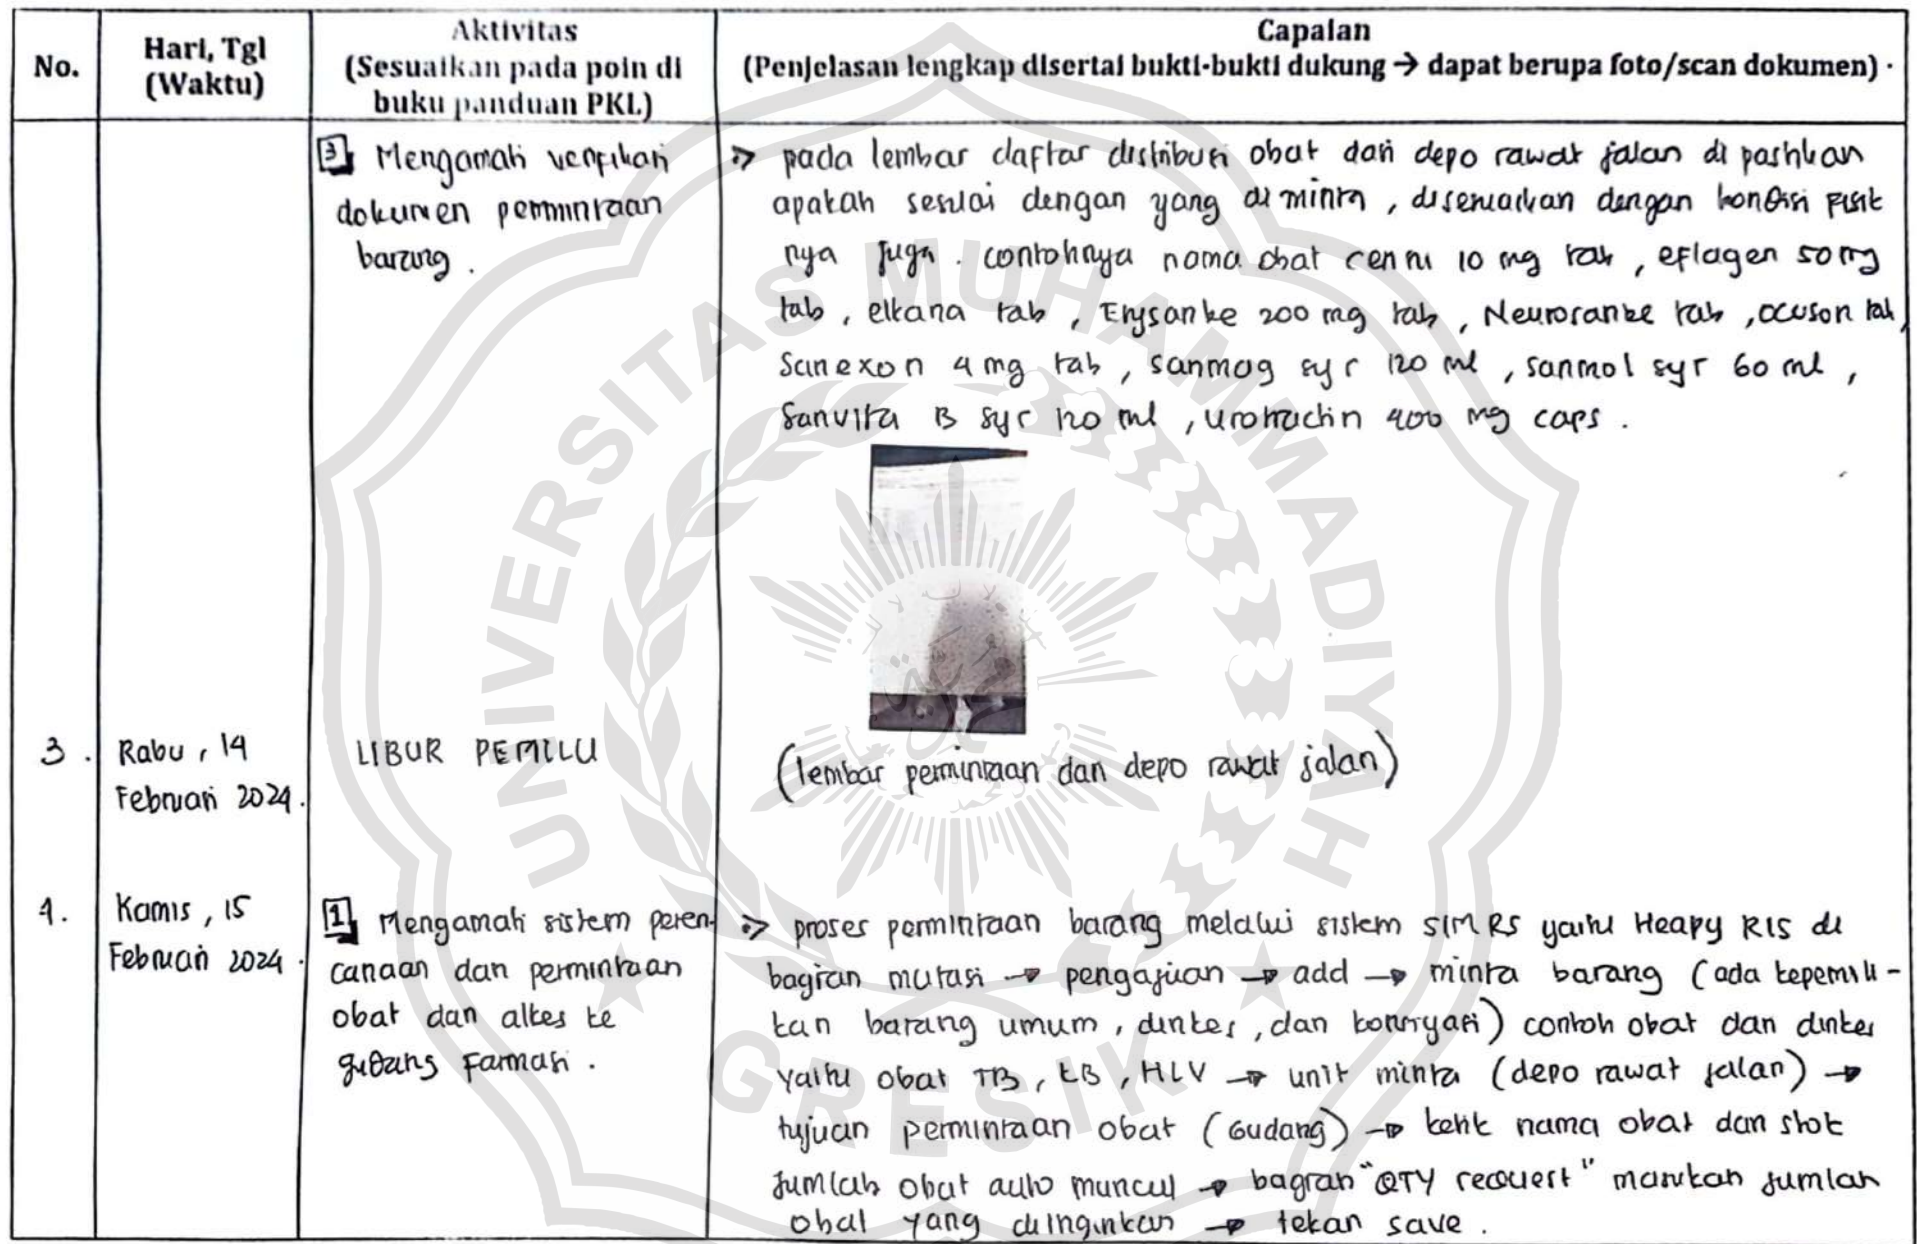 No.
Hari, Tgl
(Waktu)
Aktivitas
(Sesuaikan pada poin di
buku panduan PKL)
Capaian
(Penjelasan lengkap disertai bukti-bukti dukung → dapat berupa foto/scan dokumen)
3 Mengamati verifikasi
dokumen permintaan
barang.
⇒ pada lembar daftar distribusi obat dari depo rawat jalan di pastikan
apakah sesuai dengan yang di minta, disesuaikan dengan kondisi fisik
nya juga. contohnya nama obat 10 mg tab, eflagen 50 mg
tab, elkana tab, Erysanbe 200 mg tab, Neurosanbe tab, ocuson tab,
Sanexon 4 mg tab, sanmag syr 120 ml, sanmol syr 60 ml,
Sanvita B syr 120 ml, urotractin 400 mg caps.
3.
Rabu, 14
Februari 2024.
LIBUR PEMILU
(lembar permintaan dari depo rawat jalan)
4.
Kamis, 15
Februari 2024.
1 Mengamati sistem peren-
canaan dan permintaan
obat dan alkes ke
gudang farmasi.
⇒ proses permintaan barang melalui sistem SIMRS yaitu Heapy RIS di
bagian mutasi → pengajuan → add → minta barang (ada kepemili-
kan barang umum, dinkes, dan konsinyasi) contoh obat dari dinkes
yaitu obat TB, KB, HIV → unit minta (depo rawat jalan) →
tujuan permintaan obat (Gudang) → ketik nama obat dan stok
jumlah obat auto muncul → bagian "QTY request" masukan jumlah
obat yang diinginkan → tekan save.
UNIVERSITAS MUHAMMADIYAH
GRESIK